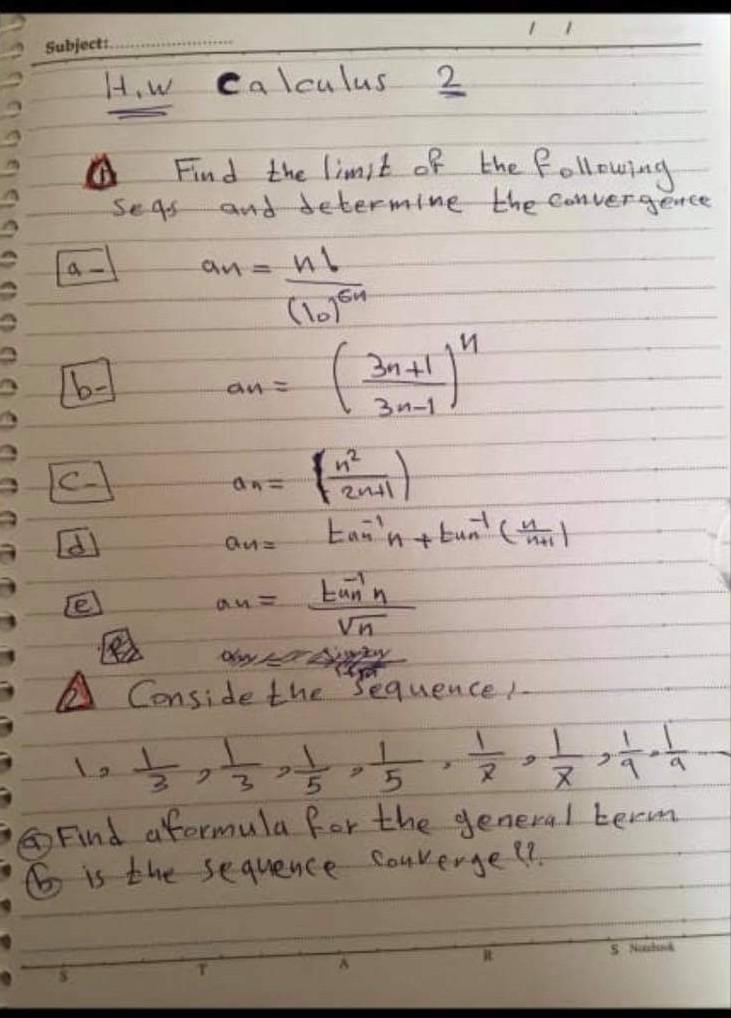 Subject:........................ / /
H.W Calculus 2
① Find the limit of the following
seqs and determine the convergence
a- an = n! / (10)^6n
b- an = ( 3n+1 / 3n-1 )^n
c- an = ( n² / 2n+1 )
d an = tan⁻¹n + tan⁻¹ ( n / n+1 )
e an = tan⁻¹ n / √n
2 Conside the sequence:-
1, 1/3, 1/3, 1/5, 1/5, 1/7, 1/7, 1/9, 1/9 ....
ⓐ Find a formula for the general term
ⓑ is the sequence converge??.
S T A R S Notebook